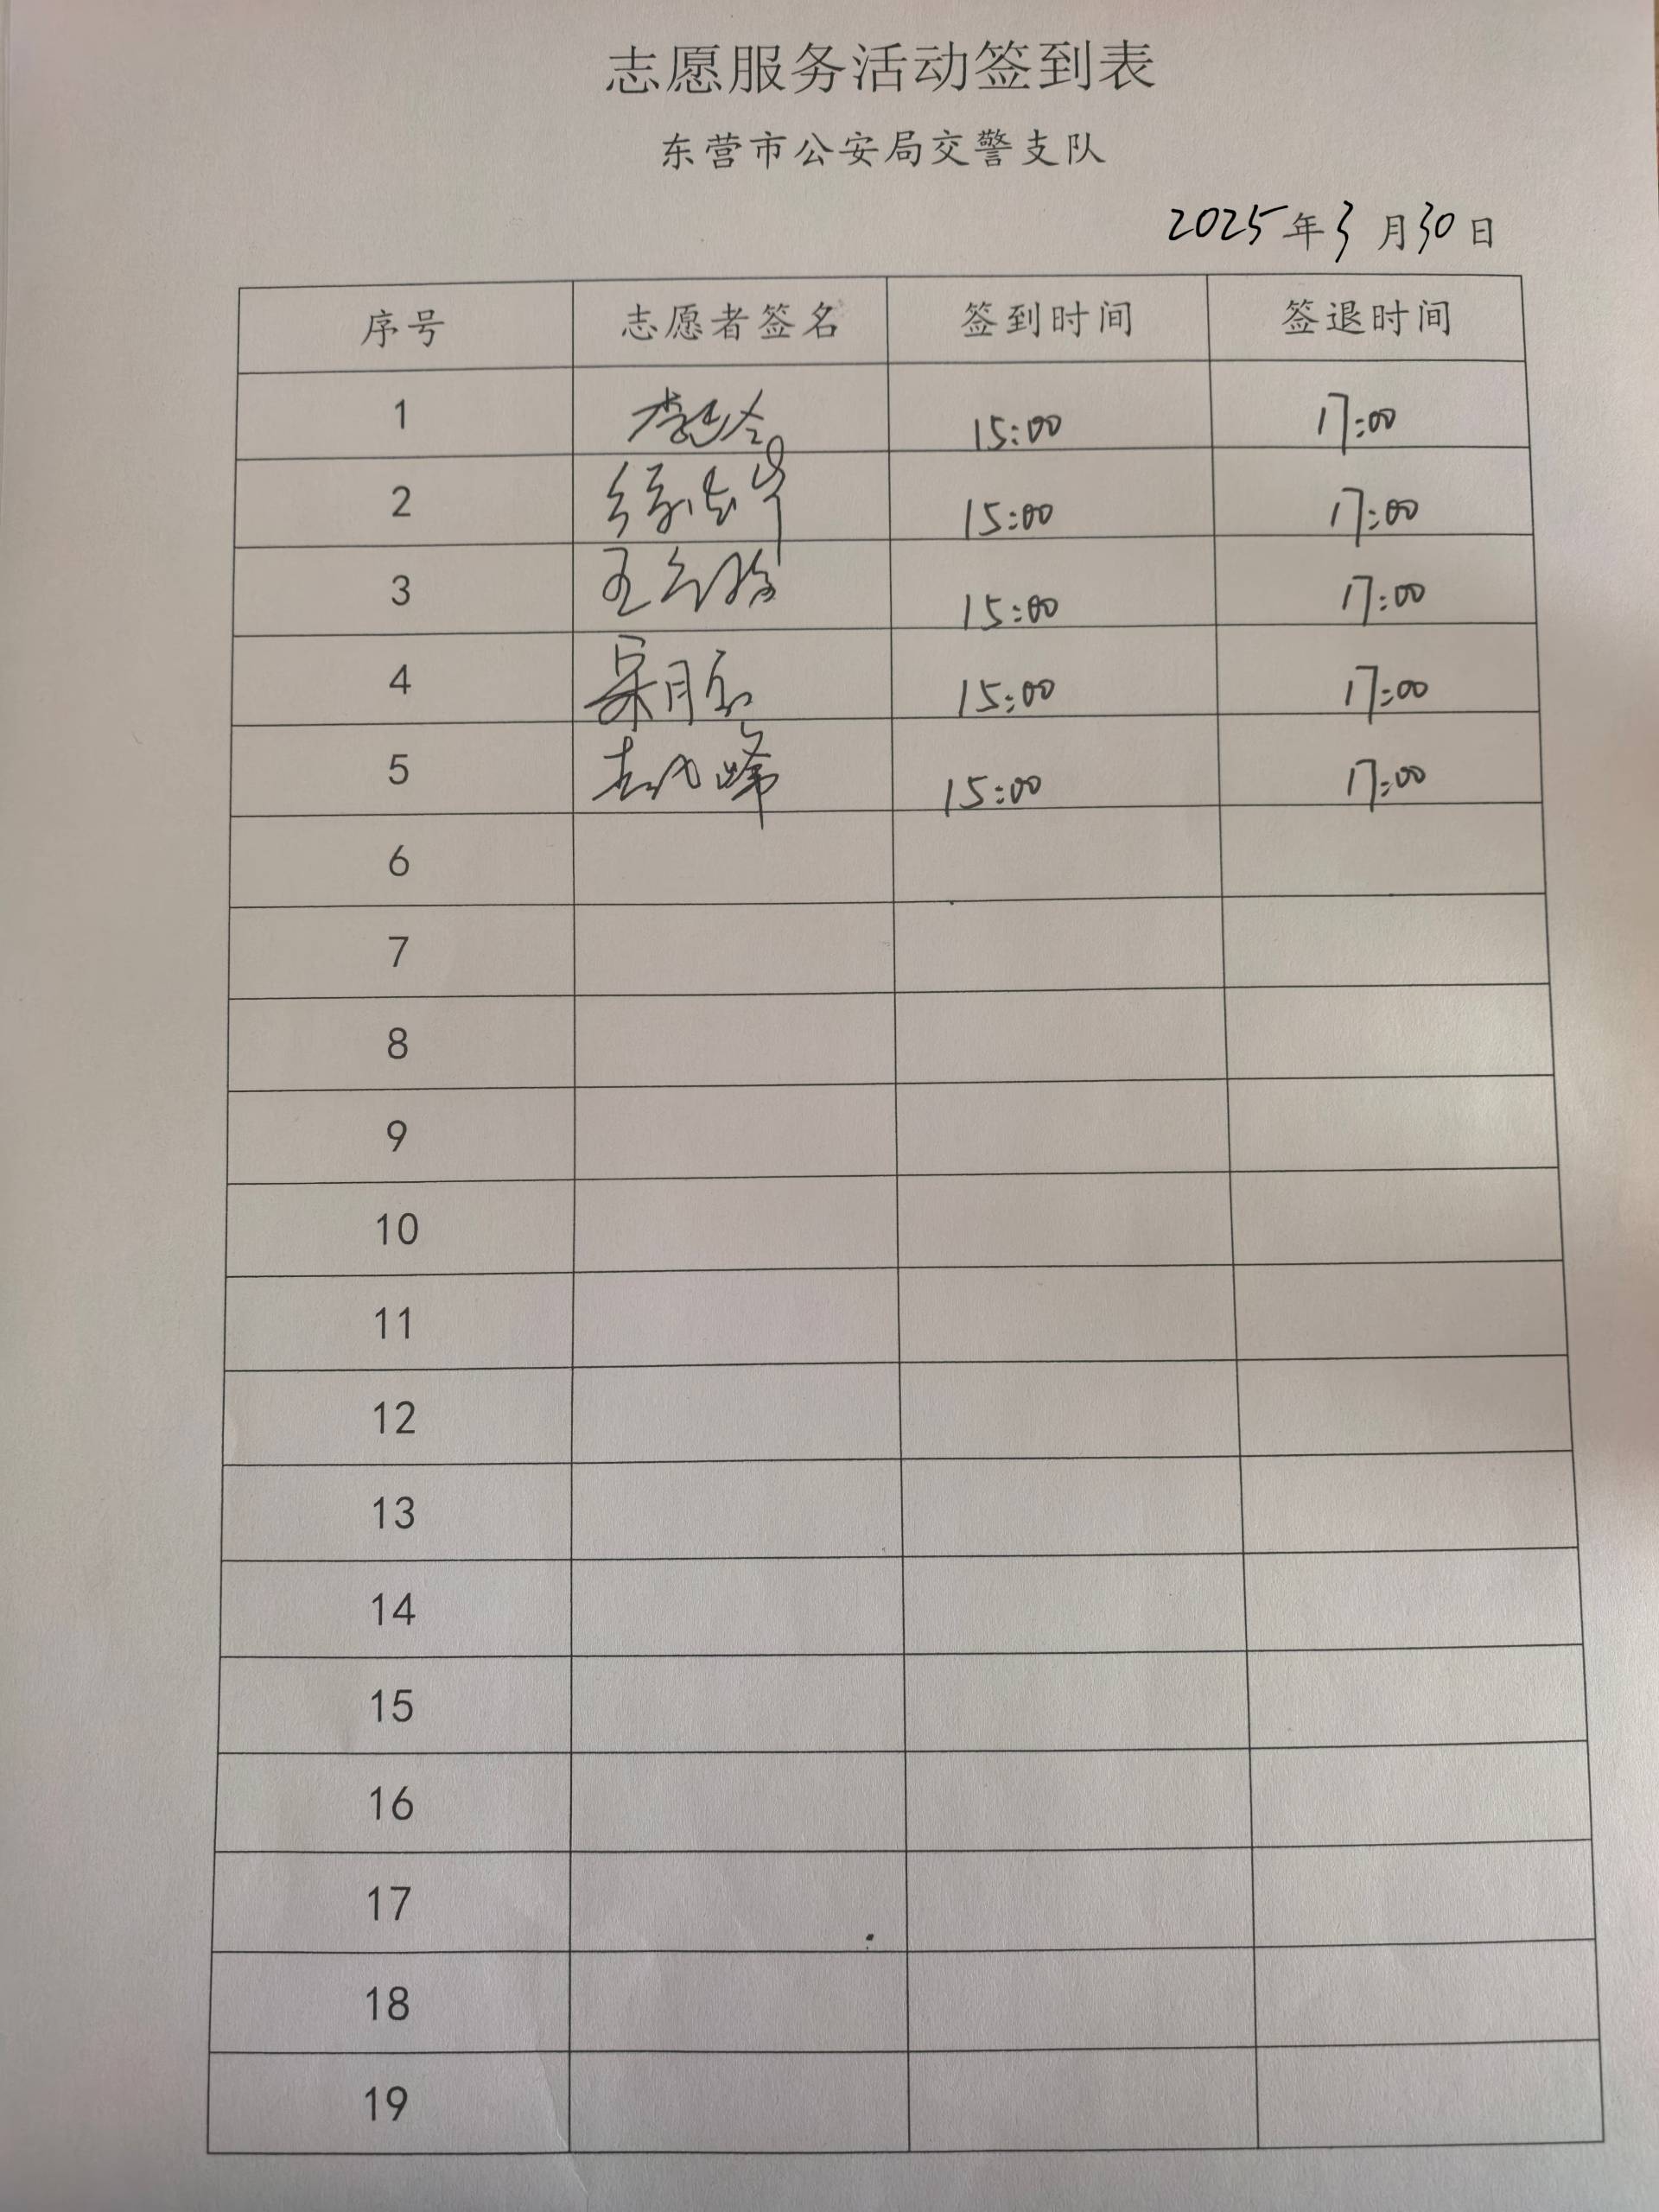 志愿服务活动签到表
东营市公安局交警支队
2025年3月30日
序号 志愿者签名 签到时间 签退时间
1 15:00 17:00
2 15:00 17:00
3 王 15:00 17:00
4 15:00 17:00
5 峰 15:00 17:00
6
7
8
9
10
11
12
13
14
15
16
17
18
19